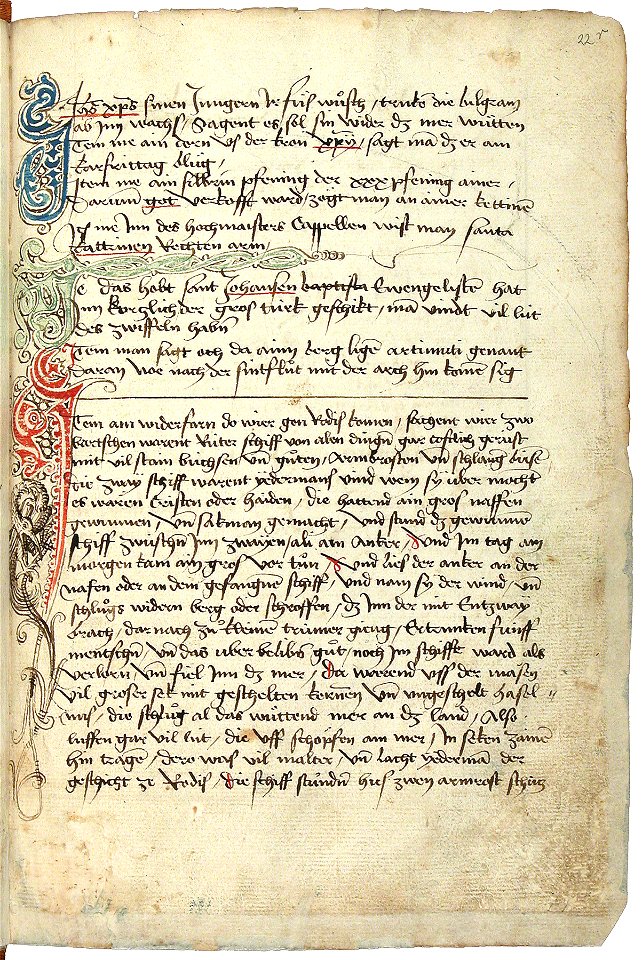 22r
xp̄s sinen Jungern Ir füs wůsch / trukt die bilgram
ab Inn wachs / Sagent es sol sin wider dz mer wütten
Item me ain dorn vs der kron xp̄i / sagt mā dz er am
karfrittag blüg /
Item me ain silbrin pfening der xxx pfening ainer /
Darum̄ got verkofft ward / zögt man an ainer kettinē
Item me Inn des hochmaisters Cappellen wist man santa
kattrinen Rechten arm /
Item das hobt sant Johansen baptista Ewengelistē hat
im kortzlich der gros türk geschikt / mā vindt vil lüt
des zwiffeln habn̄
Item man sagt och da ainn berg ligē artimiti genant
daran Noe nach der sintflůt mit der arch hin komē sig
Item am widerfarn do wier gen Rodis komen / sachent wier zwo
bartschen warent Riter schiff von alen dingn̄ gar costlich gerüst
mit vil stain büchsen vn̄ gůten / Armbrosten vn̄ schlang büsē
die zway schiff warent yedermans vind wem sy über mocht
es waren Cristen oder haiden / die hattend ain gros naffen
gewunnen / vn̄ sakman gemacht / vnd stund dz gewunnē
schiff zwüschn̄ Inn zwayen / an ain Anker / vnd Im tag am
morgen kam ain gros vor tun / vnd lies der anker an der
nafen oder an dem gefangnē schiff / vnd nam sy der wind / vn̄
schlůgs widern berg oder schroffen / dz Inn der mit Entzway
brach / dar nach zů klainen trümer gieng / Ertrunken fünff
mentschn̄ vn̄ das über belibn̄ gůt / noch Im schiff ward als
verlorn / vn̄ fiel Inn dz mer / da warend vff der masen
vil groser sek mit geschelten kernen vn̄ vngeschelt hasel=
nus / die schlůg al das wüttend mer an dz land / Also
luffen gar vil lüt / die vff schöpfen am mer / In seken zamē
hin tragē / dero was vil malter vn̄ lacht yedermā der
geschicht ze Rodis / die schiff stůndn̄ hies zwen armrost schütz